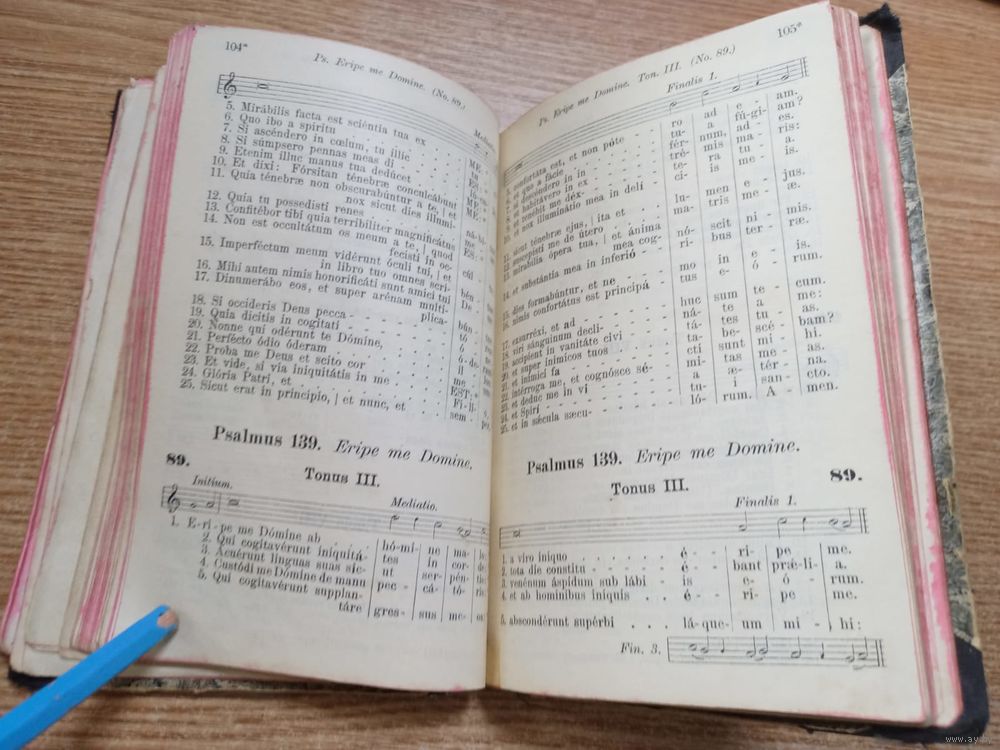 104*
Ps. Eripe me Domine. (No. 89.)
5. Mirábilis facta est sciéntia tua ex
6. Quo ibo a spíritu
7. Si ascéndero in cœlum, tu illic
8. Si súmpsero pennas meas di
9. Etenim illuc manus tua dedúcet
10. Et dixi: Fórsitan ténebræ conculcábunt
11. Quia ténebræ non obscurabúntur a te, | et
nox sicut dies illumi-
12. Quia tu possedísti renes
13. Confitébor tibi quia terribíliter magnificátus
14. Non est occultátum os meum a te, | quod
fecísti in oc-
15. Imperféctum meum vidérunt óculi tui, | et
in libro tuo omnes scri-
16. Mihi autem nimis honorificáti sunt amíci tui
17. Dinumerábo eos, et super arénam multi-
plica-
18. Si occíderis Deus pecca
19. Quia dícitis in cogitati
20. Nonne qui odérunt te Dómine,
21. Perfécto ódio óderam
22. Proba me Deus et scito cor
23. Et vide, si via iniquitátis in me
24. Glória Patri, et
25. Sicut erat in princípio, | et nunc, et
Psalmus 139. Eripe me Domine.
89.
Tonus III.
Initium.
Mediatio.
1. E-ri-pe me Dómine ab hó-mi- ne ma-
2. Qui cogitavérunt iniquitá- tes in cor-
3. Acuérunt linguas suas sic- ut ser- pén-
4. Custódi me Dómine de manu pec- cá- tó-
5. Qui cogitavérunt supplan-
táre gres- sus me-
105*
Ps. Eripe me Domine. Ton. III. (No. 89.)
Finalis 1.
5. confortáta est, et non póte ro ad e - am.
6. et quo a fácie tu- a fú-gi- am?
7. si descéndero in in fér- num, ad - es.
8. et habitávero in ex tré- mis ma - ris:
9. et tenébit me déx- te- ra tu - a.
10. et nox illuminátio mea in delí ci- is me - is.
12. sicut ténebræ ejus, | ita et lu- men e - jus.
suscepísti me de útero ma- tris me - æ.
mirabília ópera tua, | et ánima
mea cog- nó- scit ni - mis.
14. et substántia mea in inferió- ri- bus ter - ræ.
15. dies formabúntur, et ne mo in e - is.
16. nimis confortátus est principá tus e- ó - rum.
17. exsurréxi, et ad huc sum te - cum.
18. viri sánguinum declí- ná- te a me:
19. accípient in vanitáte civi tá- tes tu - as.
20. et super inimícos tuos ta- be- scé - bam?
21. et inimíci fa cti sunt mi - hi.
22. intérroga me, et cognósce sé- mi- tas me - as.
23. et deduc me in vi a æ- tér - na.
24. et Spirí tu- i san - cto.
25. et in sǽcula sæcu- ló- rum. A - men.
Psalmus 139. Eripe me Domine.
89.
Tonus III.
Finalis 1.
1. a viro iníquo é- ri- pe me.
2. tota die constitu é- bant prǽ-li- a.
3. venénum áspidum sub lábi - is e- ó- rum.
4. et ab homínibus iníquis é- ri- pe me.
5. abscondérunt supérbi lá-que- um mi- hi:
Fin. 3.
www.ay.by